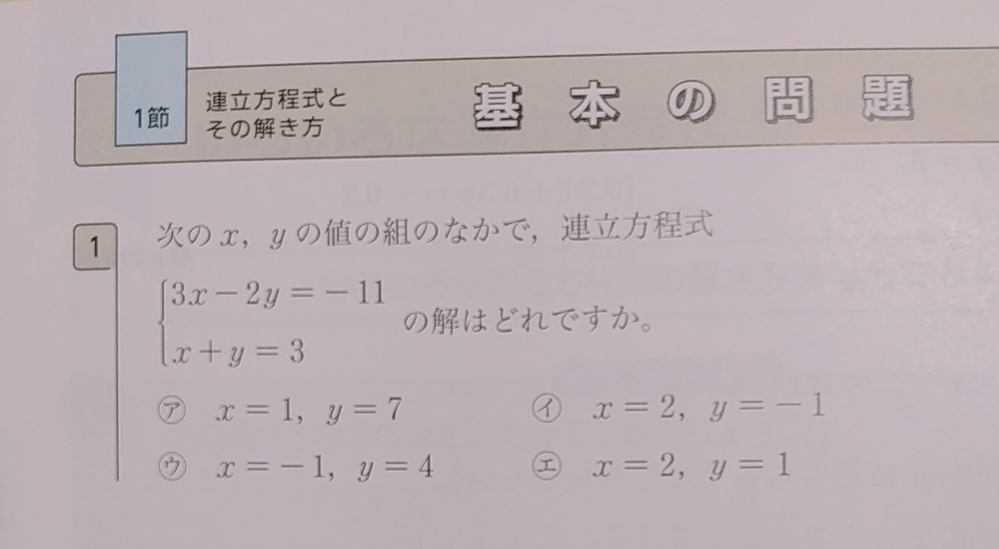 1節
連立方程式と
その解き方
基本の問題
1
次の x, y の値の組のなかで, 連立方程式
3x − 2y = − 11
x + y = 3
の解はどれですか。
㋐ x = 1, y = 7
㋑ x = 2, y = − 1
㋒ x = − 1, y = 4
㋓ x = 2, y = 1